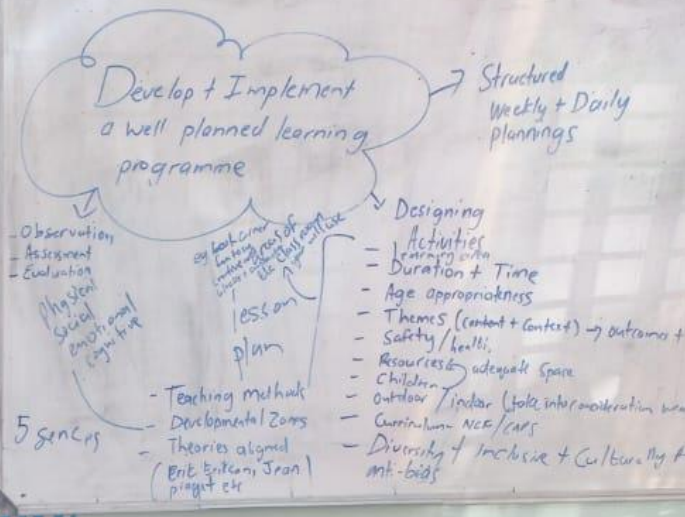 Develop + Implement
a well planned learning
programme
Structured
weekly + Daily
plannings
- Observation
- Assessment
- Evaluation
physical
social
emotional
cognitive
5 senses
eg book corner
fantasy
areas of
the classroom
you will use
lesson
plan
- Teaching methods
- Developmental Zones
- Theories aligned
(Erik Erikson, Jean
piaget etc
Designing
Activities
- learning area
- Duration + Time
- Age appropriateness
- Themes (content + context) → outcomes +
- Safety/health,
- Resources & adequate space
- Children
- outdoor / indoor (take into consideration
- Curriculum NCF/CAPS
- Diversity + Inclusive + Culturally
anti-bias